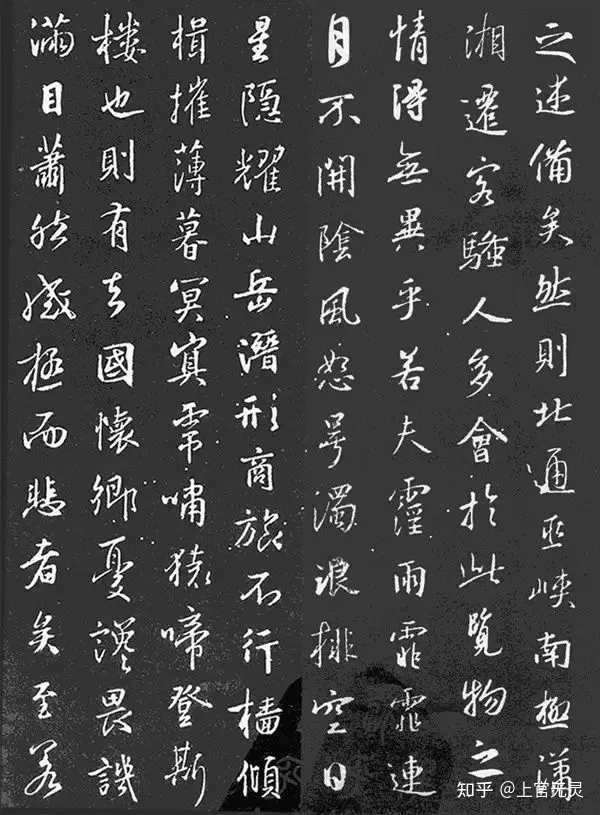 之述備矣然則北通巫峽南極瀟
湘遷客騷人多會於此覽物之
情得無異乎若夫霪雨霏霏連
月不開陰風怒号濁浪排空日
星隱耀山岳潛形商旅不行檣傾
楫摧薄暮冥冥虎嘯猿啼登斯
楼也則有去國懷鄉憂讒畏譏
滿目蕭然感極而悲者矣至若
知乎 @上官灵